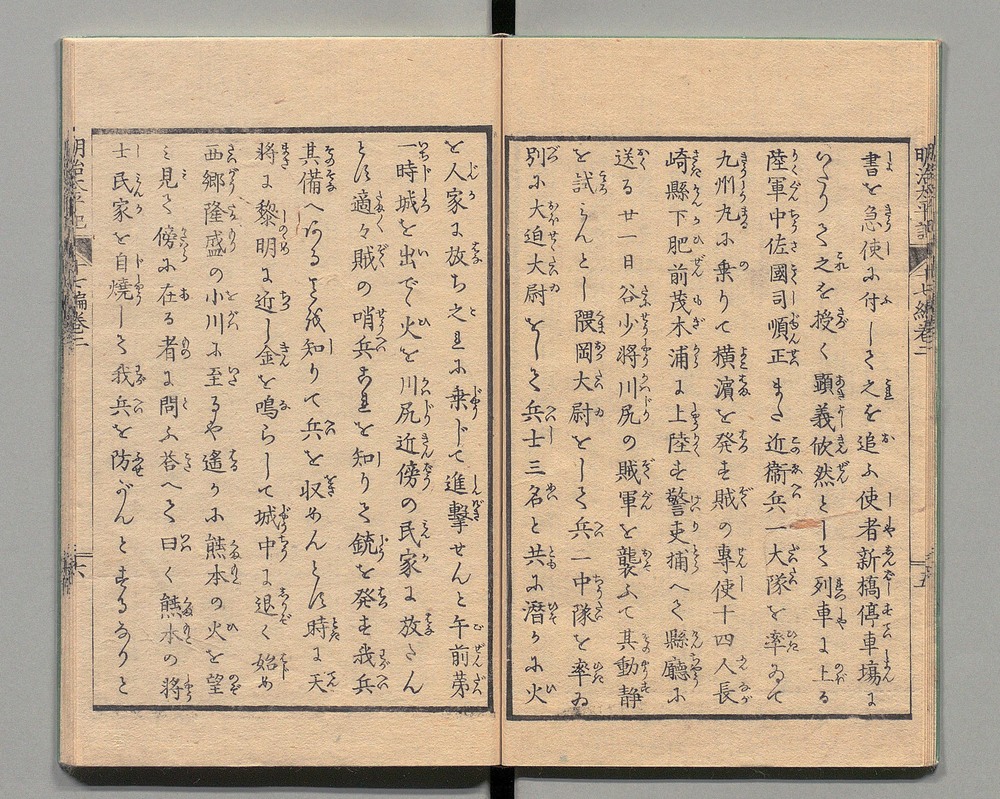 明治太平記 十七編巻二
書を急使に付して之を追ふ使者新橋停車塲に
いたりて之を授く顕義欣然として列車に上る
陸軍中佐國司順正また近衛兵一大隊を率ゐて
九州丸に乗りて横濱を発す賊の専使十四人長
崎縣下肥前茂木浦に上陸す警吏捕へて縣廳に
送る廿一日谷少将川尻の賊軍を襲ふて其動静
を試みんとし隈岡大尉をして兵一中隊を率ゐ
別に大迫大尉をして兵士三名と共に潜かに火
を人家に放ち之れに乗じて進撃せんと午前第
一時城を出で火を川尻近傍の民家に放さん
とす適々賊の哨兵これを知りて銃を発す我兵
其備へあるを知りて兵を収めんとす時に天
将に黎明に近し金を鳴らして城中に退く始め
西郷隆盛の小川に至るや遙かに熊本の火を望
み見て傍に在る者に問ふ荅へて曰く熊本の将
士民家を自焼して我兵を防がんとするなりと
明治太平記 十七編巻二